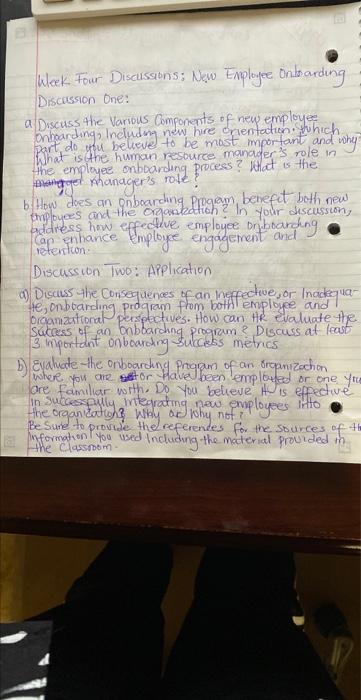 Week Four Discussions: New Employee Onboarding
Discussion One:
a Discuss the various components of new employee
onboarding, Including new hire orientation. Which
part do you believe to be most important and why?
What is the human resource manager's role in
the employee onboarding process? What is the
manager's role?
b. How does an onboarding program benefit both new
employees and the organization? In your discussion,
address how effective employee onboarding
can enhance employee engagement and
retention.
Discussion Two: Application
a) Discuss the Consequences of an Ineffective, or Inadequa-
te, onboarding program from both employee and
organizational perspectives. How can HR evaluate the
success of an onboarding program? Discuss at least
3 important onboarding success metrics.
b) Evaluate the onboarding program of an organization
where you are or have been employed or one you
are familiar with. Do you believe it is effective
in successfully integrating new employees into
the organization? Why or why not?
Be sure to provide the references for the sources of th
Information you used Including the material provided in
the Classroom.